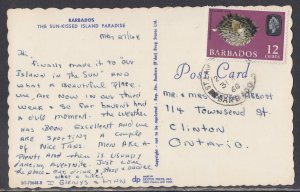 BARBADOS
THE SUN-KISSED ISLAND PARADISE
BARBADOS
12
CENTS
Finally made it to "our
Island in the Sun" and
what a beautiful place.
We are now in our third
week & so far haven't had
a dull moment. The weather
has been excellent and we
are sporting a couple
of nice tans. Men are
and when is usually
Just love the
place - great dining & shop & dance
Gladys & Lynn
Post Card
Mr & Mrs Abbott
114 Townsend St
Clinton
Ontario.